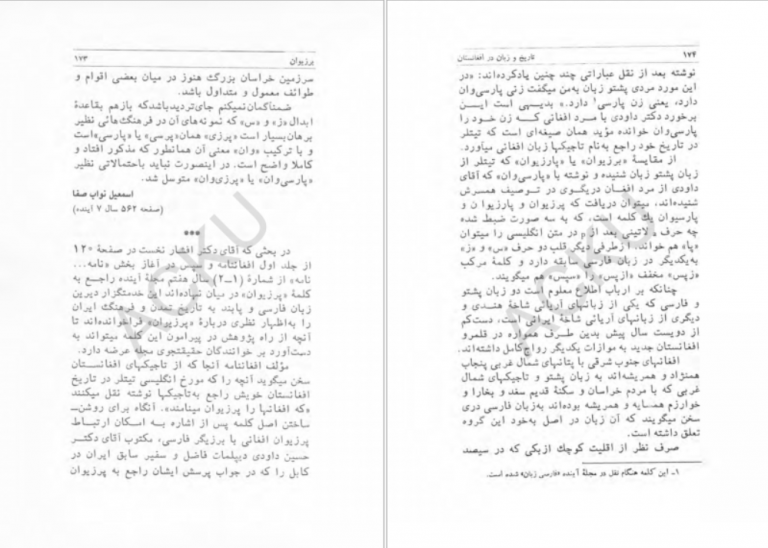 برزیوان ۱۷۳
سرزمین خراسان بزرگ هنوز در میان بعضی اقوام و
طوائف معمول و متداول باشد.
ضمناگمان نمیکنم جای‌تردیدباشدکه بازهم بقاعدهٔ
ابدال «ز» و «س» که نمونه‌های آن در فرهنگ‌هائی نظیر
برهان‌بسیار است «پرزی» همان«پرسی» یا «پارسی»است
و با ترکیب «وان» معنی آن همانطور که مذکور افتاد و
کاملا واضح است. در اینصورت نباید باحتمالاتی نظیر
«پارسی‌وان» یا «پرزی‌وان» متوسل شد.
اسمعیل نواب صفا
(صفحه ۵۶۲ سال ۷ آینده)
***
در بحثی که آقای دکتر افشار نخست در صفحهٔ ۱۲۰
از جلد اول افغاننامه و سپس در آغاز بخش «نامه...
نامه» از شمارهٔ (۱ـ۲) سال هفتم مجلهٔ آینده راجع به
کلمهٔ «پرزیوان» در میان نهاده‌اند، این خدمتگزار دیرین
زبان فارسی و پابند به تاریخ تمدن و فرهنگ ایران
را به‌اظهار نظری دربارهٔ «پرزیوان» فراخوانده‌اند تا
آنچه از راه پژوهش در پیرامون این کلمه میتواند به
دست‌آورد بر خوانندگان حقیقتجوی مجله عرضه دارد.
مؤلف افغاننامه آنجا که از تاجیکهای افغانستان
سخن میگوید آنچه را که مورخ انگلیسی تیتلر در تاریخ
افغانستان خویش راجع به‌تاجیکها نوشته نقل میکنند
«که افغانها را پرزیوان مینامند». آنگاه برای روشن‌ـ
ساختن اصل کلمه پس از اشاره به امکان ارتباط
پرزیوان افغانی با برزیگر فارسی، مکتوب آقای دکتر
حسین داودی دیپلمات فاضل و سفیر سابق ایران در
کابل را که در جواب پرسش ایشان راجع به پرزیوان
۱۷۴ تاریخ و زبان در افغانستان
نوشته بعد از نقل عباراتی چند چنین یادکرده‌اند: «در
این مورد مردی پشتو زبان به‌من میگفت زنی پارسی‌وان
دارد، یعنی زن پارسی۱ دارد.» بدیهی است ایسن
برخورد دکتر داودی با مرد افغانی که زن خود را
پارسی‌وان خوانده مؤید همان صیغه‌ای است که تیتلر
در تاریخ خود راجع به‌نام تاجیکهای زبان افغانی میآورد.
از مقایسهٔ «برزیوان» یا «پارزیوان» که تیتلر از
زبان پشتو زبان شنیده و نوشته با «پارسی‌وان» که آقای
داودی از مرد افغان دریگوی در توصیف همسرش
شنیده‌اند، میتوان دریافت که پرزیوان و پارزیوا ن و
پارسیوان یك کلمه است، که به سه صورت ضبط شده
چه حرف a لاتینی بعد از p در متن انگلیسی را میتوان
«پا» هم خواند. ازطرفی دیگر قلب دو حرف «س» و «ز»
به‌یکدیگر در زبان فارسی سابقه دارد و کلمهٔ مرکب
«زپس» مخفف «ازپس» را «سپس» هم میگویند.
چنانکه بر ارباب اطلاع معلوم است دو زبان پشتو
و فارسی که یکی از زبانهای آریائی شاخهٔ هندی و
دیگری از زبانهای آریائی شاخهٔ ایرانی است، دست‌کم
از دویست سال پیش بدین طرف همواره در قلمرو
افغانستان جدید به موازات یکدیگر رواج‌کامل داشته‌اند.
افغانهای جنوب شرقی با پتانهای شمال غربی پنجاب
همنژاد و همریشه‌اند به زبان پشتو و تاجیکهای شمال
غربی که با مردم خراسان و سکنهٔ قدیم سغد و بخارا و
خوارزم همسایه و همریشه بوده‌اند به‌زبان فارسی دری
سخن میگویند که آن زبان در اصل به‌خود این گروه
تعلق داشته است.
صرف نظر از اقلیت کوچك ازبکی که در سیصد
۱ـ این کلمه هنگام نقل در مجلهٔ آینده «فارسی زبان» شده است.
ACKU
ACKU